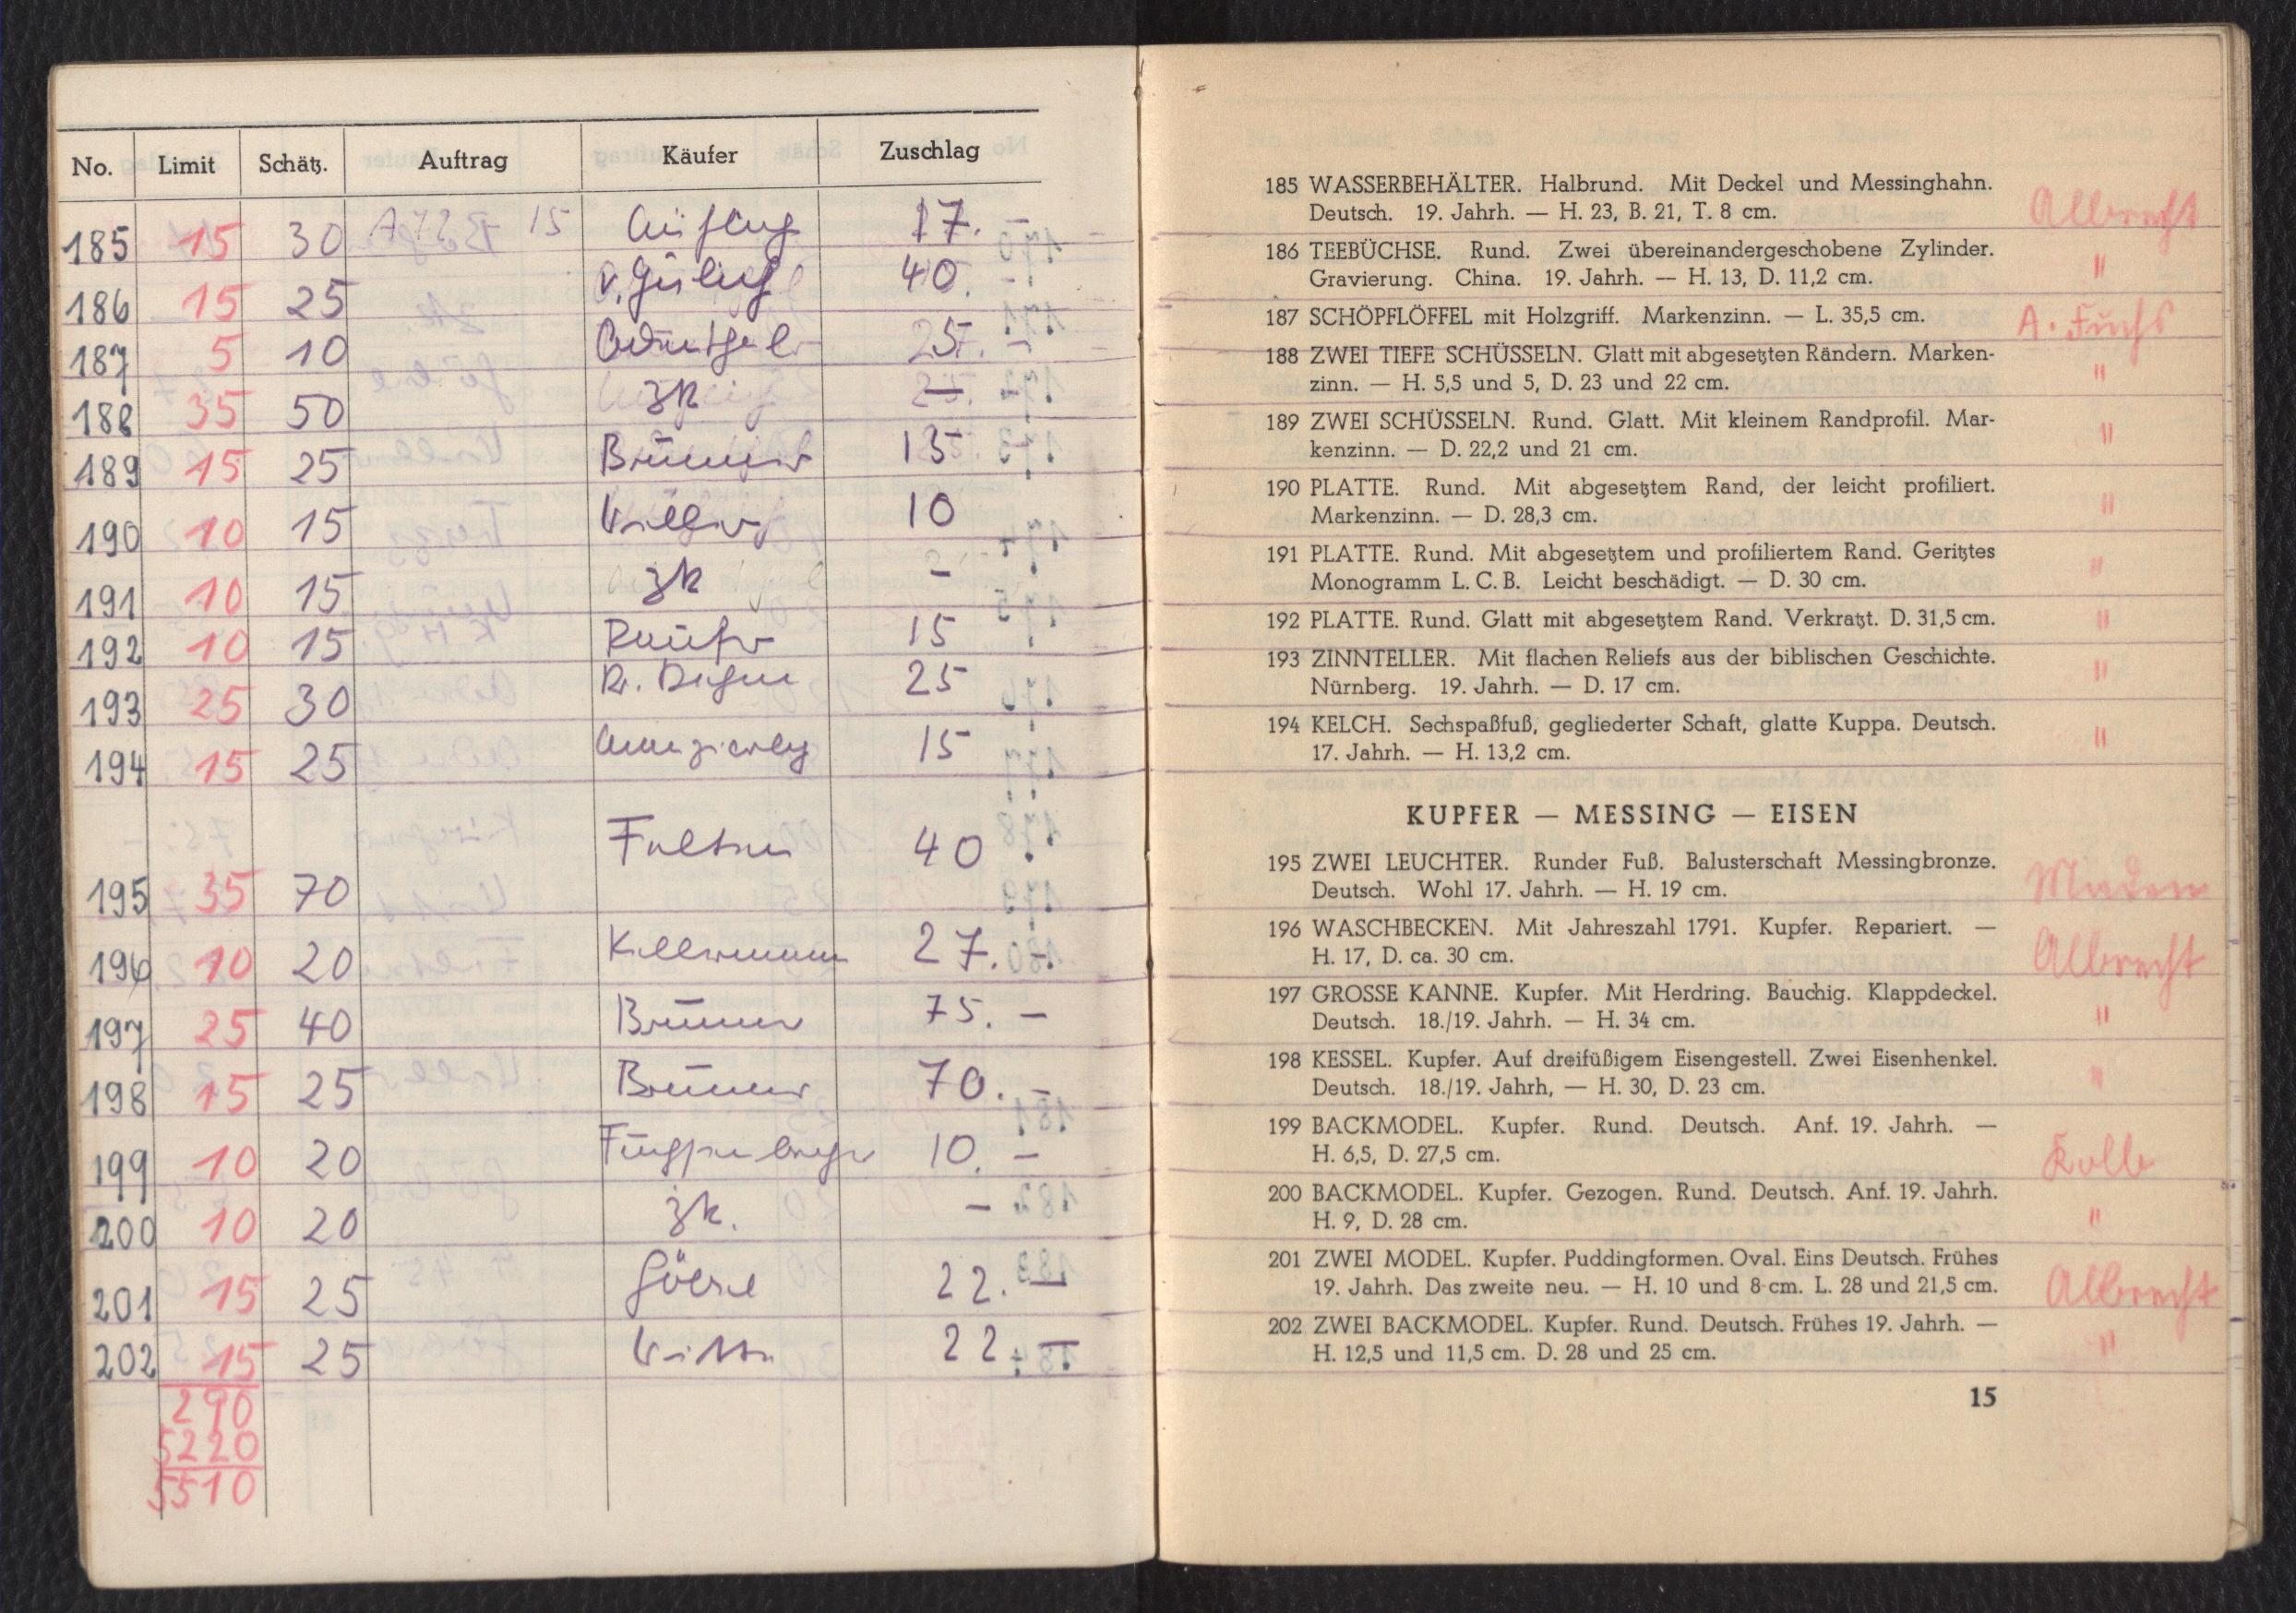 No. Limit Schätz. Auftrag Käufer Zuschlag
185 15 30 A 725 15 17.–
186 15 25 v. Gülich 40.–
187 5 10 25.–
188 35 50 zk –
189 15 25 Brunner 15
190 10 15 10
191 10 15 zk –
192 10 15 15
193 25 30 25
194 15 25 15
195 35 70 40
196 10 20 27.–
197 25 40 Brunner 75.–
198 15 25 Brunner 70.–
199 10 20 10.–
200 10 20 zk. –
201 15 25 22.–
202 15 25 22.–
290
5220
5510
185 WASSERBEHÄLTER. Halbrund. Mit Deckel und Messinghahn.
Deutsch. 19. Jahrh. — H. 23, B. 21, T. 8 cm. Albrecht
186 TEEBÜCHSE. Rund. Zwei übereinandergeschobene Zylinder.
Gravierung. China. 19. Jahrh. — H. 13, D. 11,2 cm. "
187 SCHÖPFLÖFFEL mit Holzgriff. Markenzinn. — L. 35,5 cm. A. Fuchs
188 ZWEI TIEFE SCHÜSSELN. Glatt mit abgesetzten Rändern. Marken-
zinn. — H. 5,5 und 5, D. 23 und 22 cm. "
189 ZWEI SCHÜSSELN. Rund. Glatt. Mit kleinem Randprofil. Mar-
kenzinn. — D. 22,2 und 21 cm. "
190 PLATTE. Rund. Mit abgesetztem Rand, der leicht profiliert.
Markenzinn. — D. 28,3 cm. "
191 PLATTE. Rund. Mit abgesetztem und profiliertem Rand. Geritztes
Monogramm L. C. B. Leicht beschädigt. — D. 30 cm. "
192 PLATTE. Rund. Glatt mit abgesetztem Rand. Verkratzt. D. 31,5 cm. "
193 ZINNTELLER. Mit flachen Reliefs aus der biblischen Geschichte.
Nürnberg. 19. Jahrh. — D. 17 cm. "
194 KELCH. Sechspaßfuß, gegliederter Schaft, glatte Kuppa. Deutsch.
17. Jahrh. — H. 13,2 cm. "
KUPFER — MESSING — EISEN
195 ZWEI LEUCHTER. Runder Fuß. Balusterschaft Messingbronze.
Deutsch. Wohl 17. Jahrh. — H. 19 cm.
196 WASCHBECKEN. Mit Jahreszahl 1791. Kupfer. Repariert. —
H. 17, D. ca. 30 cm. Albrecht
197 GROSSE KANNE. Kupfer. Mit Herdring. Bauchig. Klappdeckel.
Deutsch. 18./19. Jahrh. — H. 34 cm. "
198 KESSEL. Kupfer. Auf dreifüßigem Eisengestell. Zwei Eisenhenkel.
Deutsch. 18./19. Jahrh, — H. 30, D. 23 cm. "
199 BACKMODEL. Kupfer. Rund. Deutsch. Anf. 19. Jahrh. —
H. 6,5, D. 27,5 cm. Kolb
200 BACKMODEL. Kupfer. Gezogen. Rund. Deutsch. Anf. 19. Jahrh.
H. 9, D. 28 cm. "
201 ZWEI MODEL. Kupfer. Puddingformen. Oval. Eins Deutsch. Frühes
19. Jahrh. Das zweite neu. — H. 10 und 8 cm. L. 28 und 21,5 cm. Albrecht
202 ZWEI BACKMODEL. Kupfer. Rund. Deutsch. Frühes 19. Jahrh. —
H. 12,5 und 11,5 cm. D. 28 und 25 cm. "
15